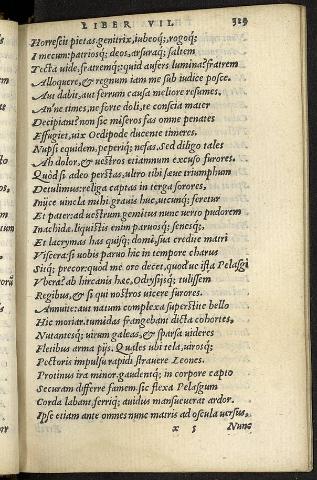 LIBER VII. 329
Horrescit pietas.genitrix,iubeoq́;,rogoq́;
I mecum:patriosq́; deos,arsuraq́; saltem
Tecta uide,fratremq́;:quid aufers lumina?fratrem
Alloquere,&regnum iam me sub iudice posce.
Aut dabit,aut ferrum causa meliore resumes.
An'ne times,ne forte doli,te conscia mater
Decipiant?non sic miseros fas omne penates
Effugiet,uix Oedipode ducente timeres.
Nupsi equidem,peperiq́; nefas,Sed diligo tales
Ah dolor,& uestros etiamnum excuso furores.
Quòd si adeo perstas,ultro tibi sæue triumphum
Detulimus:religa captas in terga sorores,
Inijce uincla mihi.grauis huc,utcunq́; feretur
Et pater:ad uestrum gemitus nunc uerto pudorem
Inachidæ.liquistis enim paruosq́; senesq́;,
Et lacrymas has quisq́; domi,sua credite matri
Viscera:si uobis paruo hic in tempore charus
Sitq́; precor,quòd me oro decet,quod'ue ista Pelasgi
Vbera?ab hircanis hæc,Odrysijsq́; tulissem
Regibus,& si qui nostros uicere furores.
Annuite:aut natum complexa superstite bello
Hic moriar.tumidas frangebant dicta cohortes,
Nutantesq́; uirum galeas,& sparsa uideres
Fletibus arma pijs.Quales ubi tela,uirosq́;
Pectoris impulsu rapidi strauere Leones.
Protinus ira minor.gaudentq́; in corpore capto
Securam differre famem.sic flexa Pelasgum
Corda labant.ferriq́; auidus mansueuerat ardor.
Ipse etiam ante omnes nunc matris ad oscula uersus,
x 5 Nunc